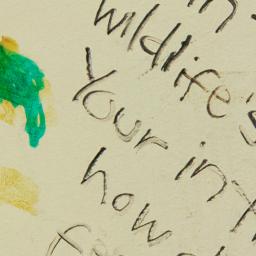 in
wildlife's
Your in
how